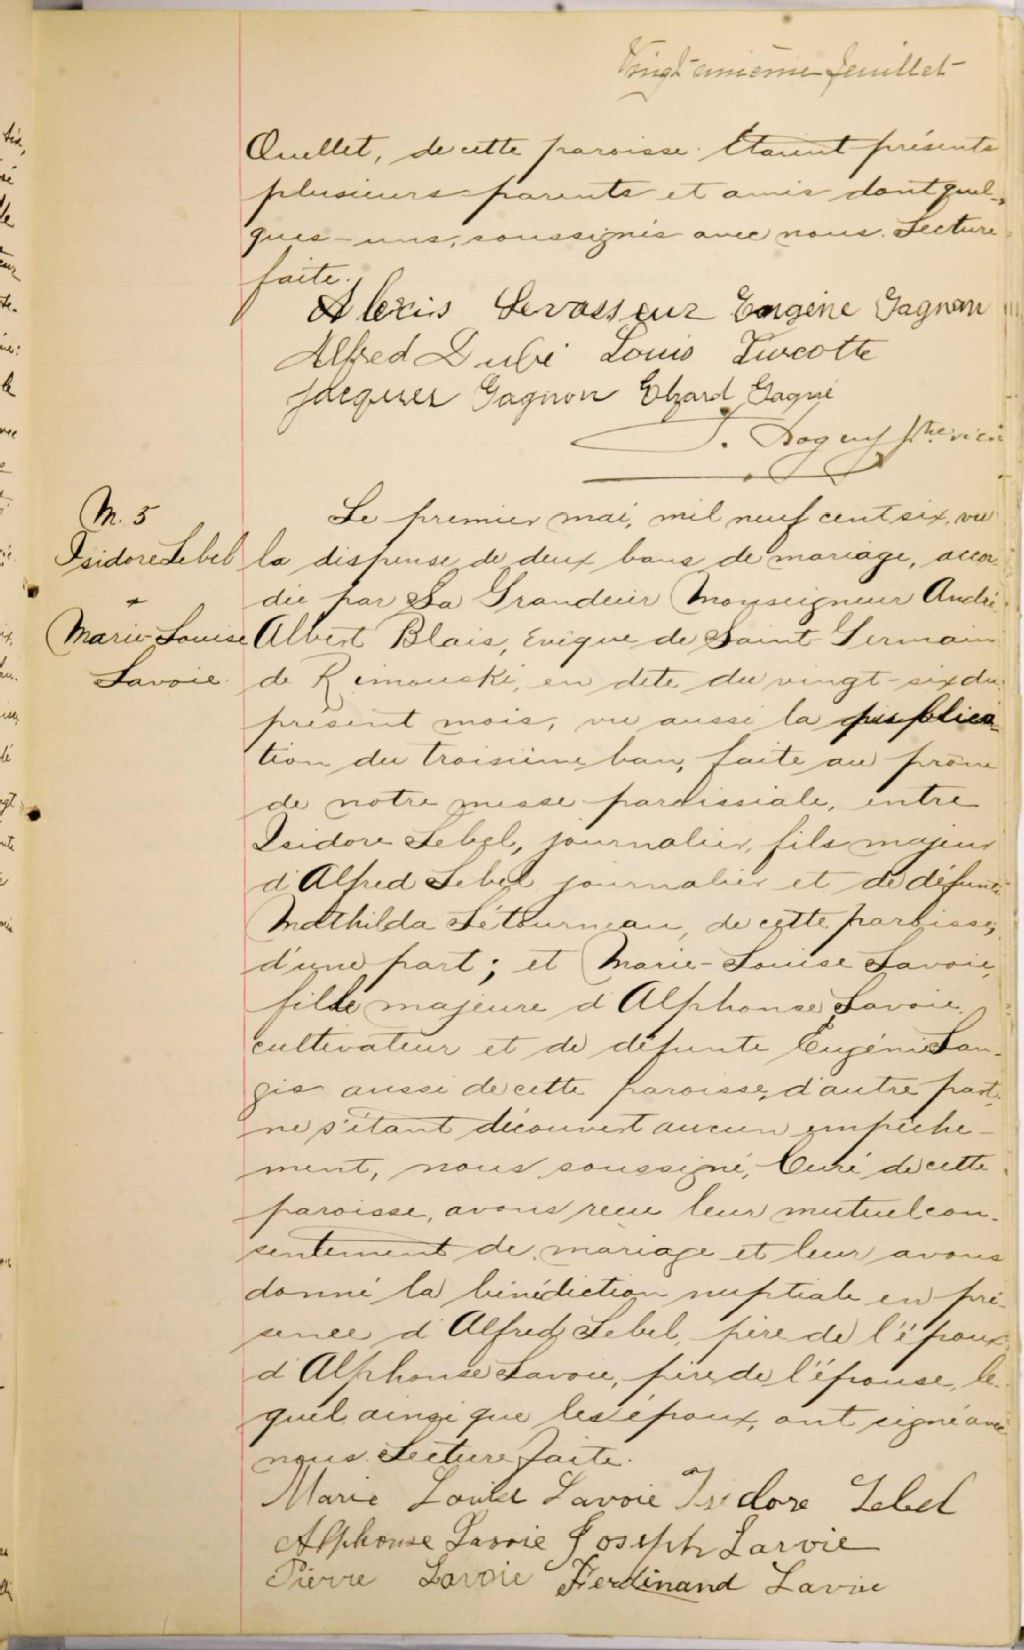 Vingt-unième feuillet
Ouellet, de cette paroisse. Étaient présents
plusieurs parents et amis dont quel-
ques-uns, soussignés avec nous. Lecture
faite.
Alexis Levasseur Eugène Gagnon
Alfred Dubé Louis Turcotte
Jacques Gagnon Elzard Gagné
J. ptre vic.
M. 5
Isidore Lebel
+
Marie-Louise
Lavoie.
Le premier mai, mil neuf cent six, vu
la dispense de deux bans de mariage, accor-
dée par Sa Grandeur Monseigneur André-
Albert Blais, Evêque de Saint Germain
de Rimouski, en date du vingt-six du
présent mois, vu aussi la publica-
tion du troisième ban, faite au prône
de notre messe paroissiale, entre
Isidore Lebel, journalier, fils majeur
d'Alfred Lebel journalier et de défunte
Mathilda Létourneau, de cette paroisse,
d'une part; et Marie-Louise Lavoie,
fille majeure d'Alphonse Lavoie,
cultivateur et de défunte Eugénie Lan-
gis aussi de cette paroisse, d'autre part,
ne s'étant découvert aucun empêche-
ment, nous, soussigné, Curé de cette
paroisse, avons reçu leur mutuel con-
sentement de mariage et leur avons
donné la bénédiction nuptiale en pré-
sence d'Alfred Lebel, père de l'époux,
d'Alphonse Lavoie, père de l'épouse, le-
quel ainsi que les époux, ont signé avec
nous. Lecture faite.
Marie Louise Lavoie Isidore Lebel
Alphonse Lavoie Joseph Larvie
Pierre Lavoie Ferdinand Lavoie